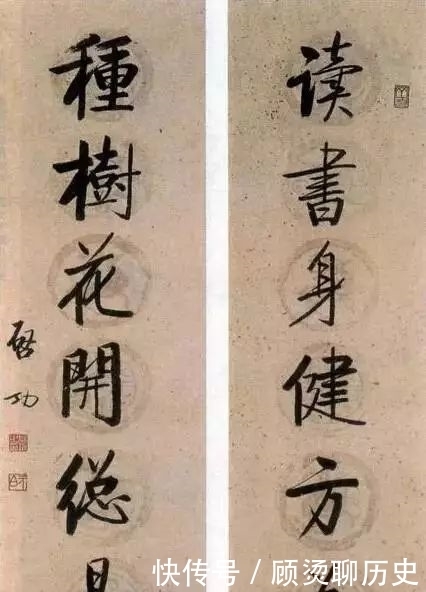 读書身健方
種樹花開總
啓功
快传号 / 顾烫聊历史